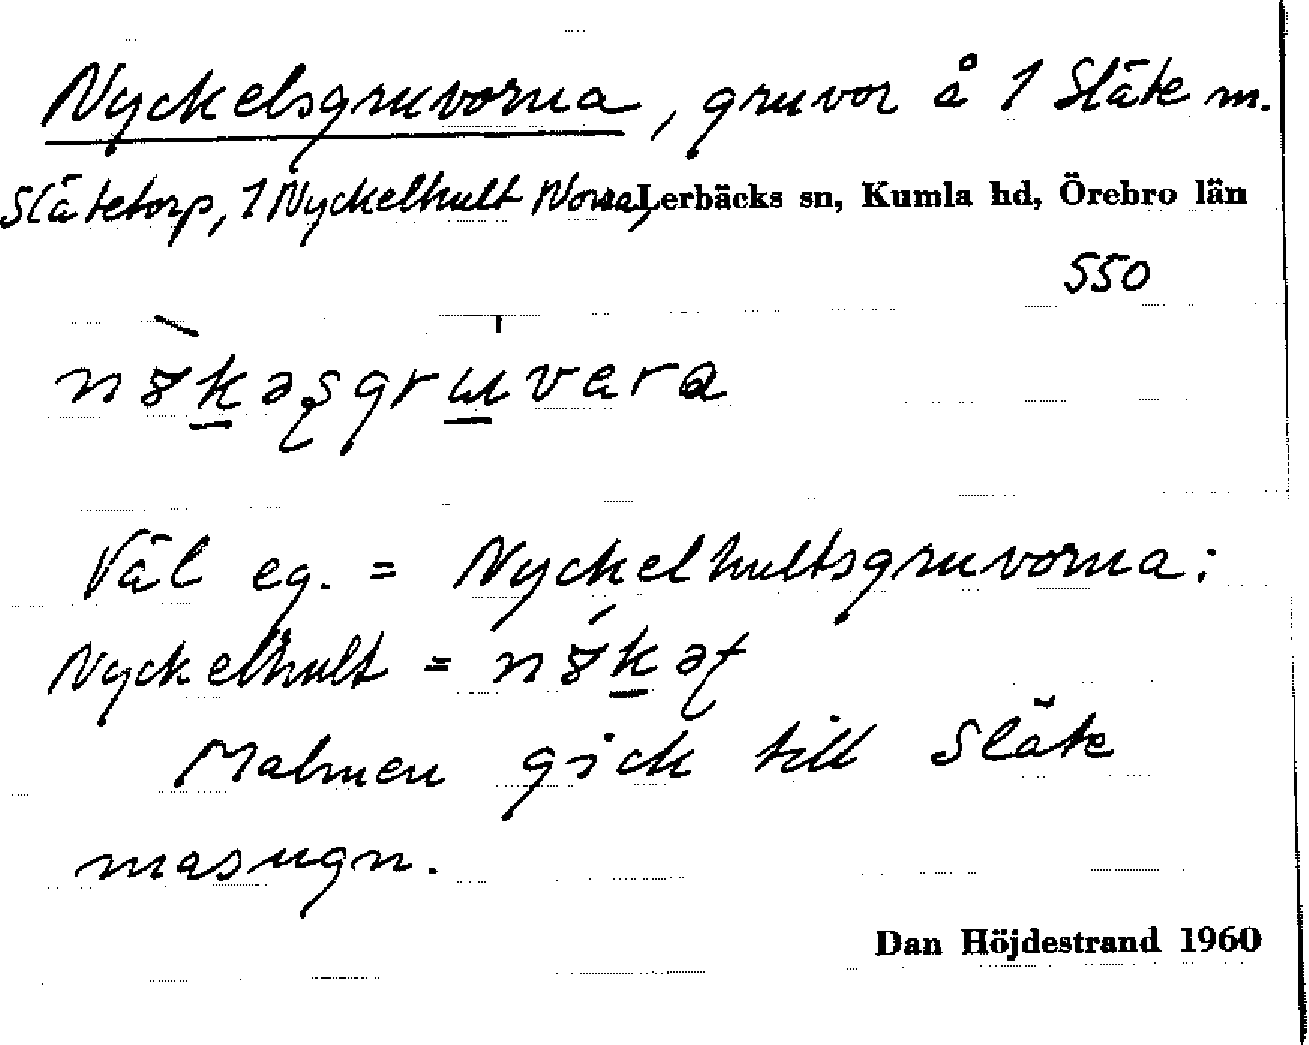 Nyckelsgruvorna, gruvor å 1 Släte m.
Slätetorp, 1 Nyckelhult Norra, Lerbäcks sn, Kumla hd, Örebro län
550
Väl eg. = Nyckelhultsgruvorna:
Nyckelhult =
Malmen gick till Släte
masugn.
Dan Höjdestrand 1960